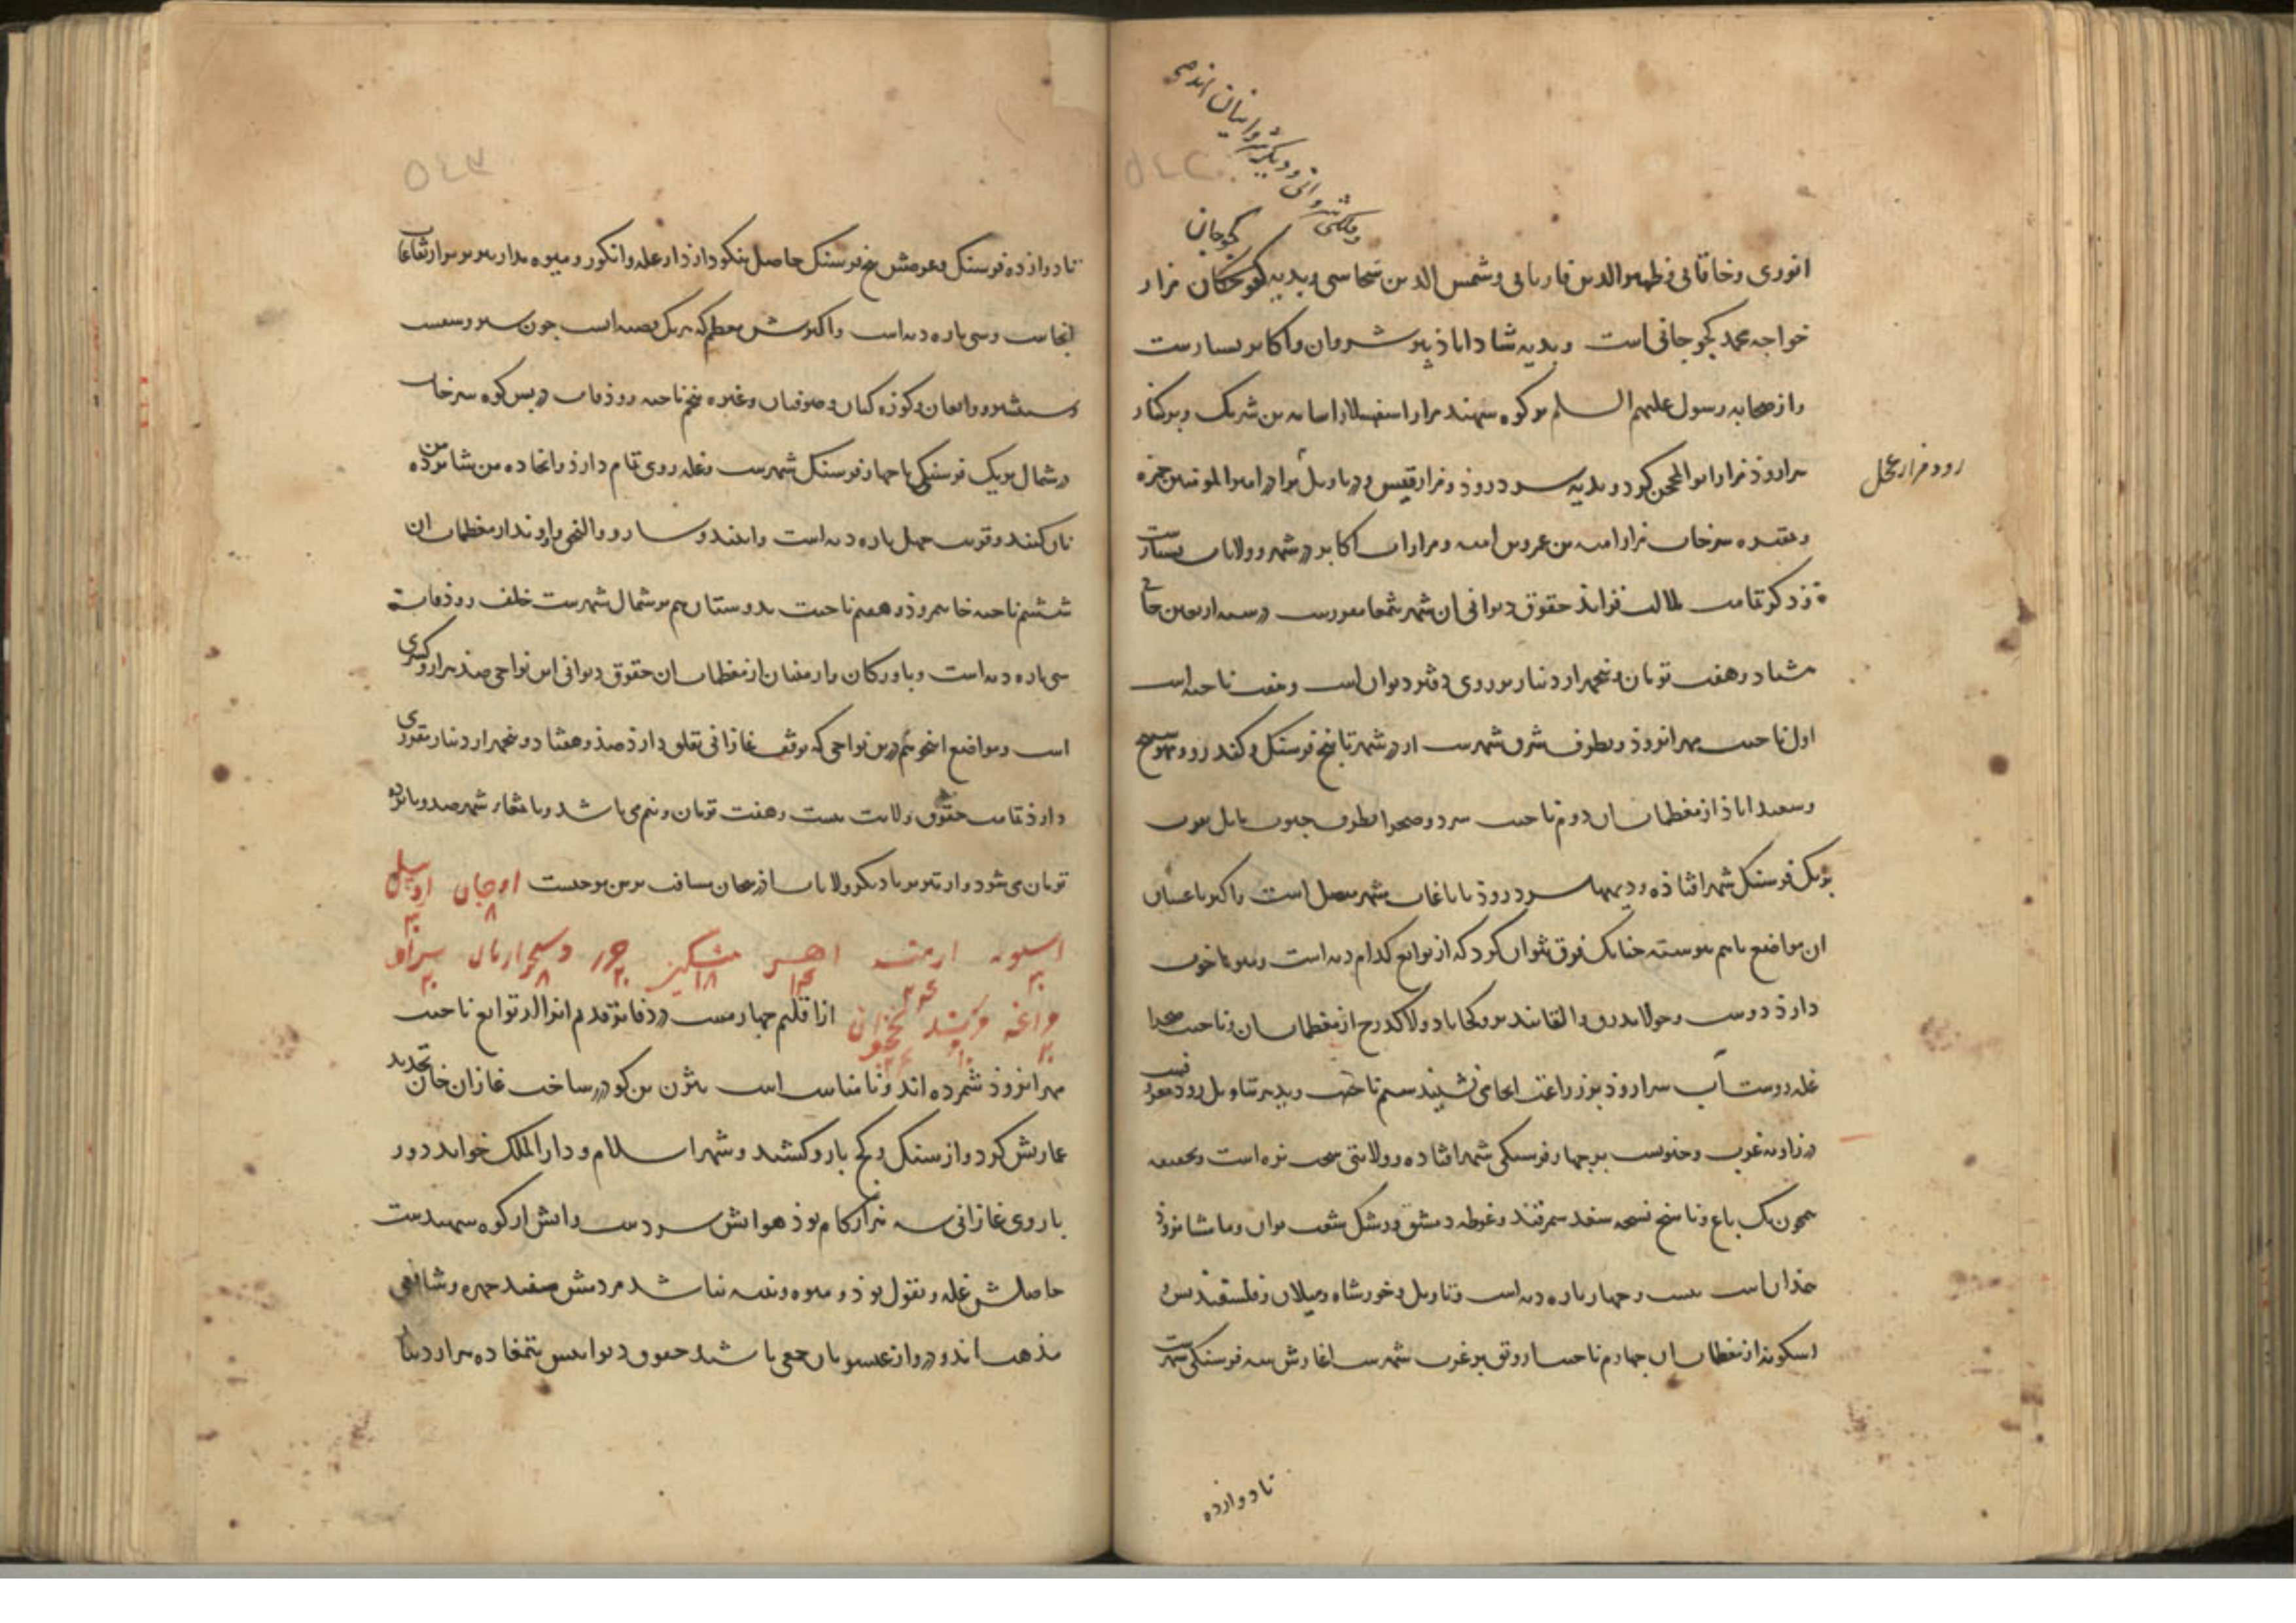 وفلکی شروانی و دیگر شروانیان اند
کجوجان
انوری و خاقانی و ظهیر الدین فاریابی و شمس الدین سجاسی و بدیه کجوجان مزار
خواجه محمد کجوجانی است و بدیه شاداباذ پیر شروان و اکابر بسیارست
و از صحابه رسول علیهم السلم بر کوه سهند مزار اسفهسلار اسامه بن شریک و بر کنار
سراروذ مزار ابوالمحجن کرد و بدیه سردروذ و مزار قیس و در باویل برادر امیر المومنین حمزه
رود مزار عجل
و مقبره سرخاب مزار امیه بن عمرو بن امیه و مزارات اکابر در شهر و ولایات بسیارست
ذکر تمامت حقوق دیوانی ان شهر بتمغا مقررست در سنه اربعین خانی
هشتاد و هفت تومان و پنجهزار دینار بر روی دفتر دیوان است و هفت ناحیه است
اول ناحیت مهرانروذ و بطرف شرق شهرست از در شهر تا پنج فرسنک و کندرود و
و سعیداباذ از معظمات ان دوم ناحیت سردوصحرا بطرف جنوب مایل بغرب
بر یک فرسنک شهر افتاذه و دیهها سردروذ با باغات شهر متصل است و اکثر باغستان
ان مواضع باهم پیوسته چنانک فرق نتوان کرد که از توابع کدام دیه است و میوها خوب
دارذ دوست و جولاندرق و القابندر و کجاباد و لاکدرج از معظمات ان و ناحیت
غله روست آب سراروذ بر زراعت انجا می نشیند سیم ناحیت دیه
در زاویه غرب و جنوبست بر چهار فرسنکی شهر افتاده و ولایتی سخت نزه است و بحقیقت
همچون یک باغ و ناسخ نسخه سغد سمرقند و غوطه دمشق و رشک شعب بوان و ماشانروذ
همذان است بیست و چهار پاره دیه است و تاویل و خورشاه و میلان و فلسفندیس و
اسکویه از معظمات ان چهارم ناحیت ارونق بر غرب شهرست اغازش سه فرسنکی شهرست
تا دوازده
تا دوازده فرسنک و عرضش پنج فرسنک حاصل نیکو دارذ از غله و انکور و میوه مدار تبریز بر ارتفاعات
انجاست و سی پاره دیه است و اکثرش معظم که هر یک قصبه ایست جون
و شبستر و وایقان و کوزه کنان و صوفیان و غیره پنجم ناحیه روذقات در پس کوه سرخاب
در شمال بر یک فرسنکی تا چهار فرسنک شهرست و غله روی تمام دارذ و انجا ده من
نان کند و قرب جهل پاره دیه است و از معظمات ان
ششم ناحیه خانمروذ و هفتم ناحیت بدوستان هم بر شمال شهرست خلف روذقات
سی پاره دیه است و باورکان و ارمنیان از معظمات ان حقوق دیوانی این نواحی صذ هزار و کسری
است و مواضع اینجو هم درین نواحی که بوقف غازانی تعلق دارذ صذ و هشتاد و پنجهزار دینار تقرری
دارذ تمامت حقوق ولایت بیست و هفت تومان و نیم می باشد و با تمغاء شهر صد و پانزده
تومان می شود و از تبریز با دیکر ولایات اذربیجان مسافت برین موجبست اوجان ۸ اردبیل ۳۰
اسنویه ۲۰ ارمیه ۲۴ اهر ۱۴ مشکین ۱۸ خوی ۲۰ ده خوارقان ۸ سراو ۲۰
مراغه ۲۰ مرند ۱۰ نخجوان ۲۴ از اقلیم چهارمست در دفاتر قدیم انرا از توابع ناحیت
مهرانروذ شمرده اند و تا شناس است بیژن بن کیو ساخت غازان خان تجدید
عمارتش کرد و از سنک و کچ بارو کشید و شهر اسلام و دارالملک خواند دور
باروی غازانی سه هزار کام بوذ هوایش سردست و ابش از کوه سهندست
حاصلش غله و بقول بوذ و میوه و پنبه نباشد مردمش سفید چهره و شافعی
مذهب اند و درو از عیسویان جمعی باشند حقوق دیوانیش بتمغا ده هزار دینار